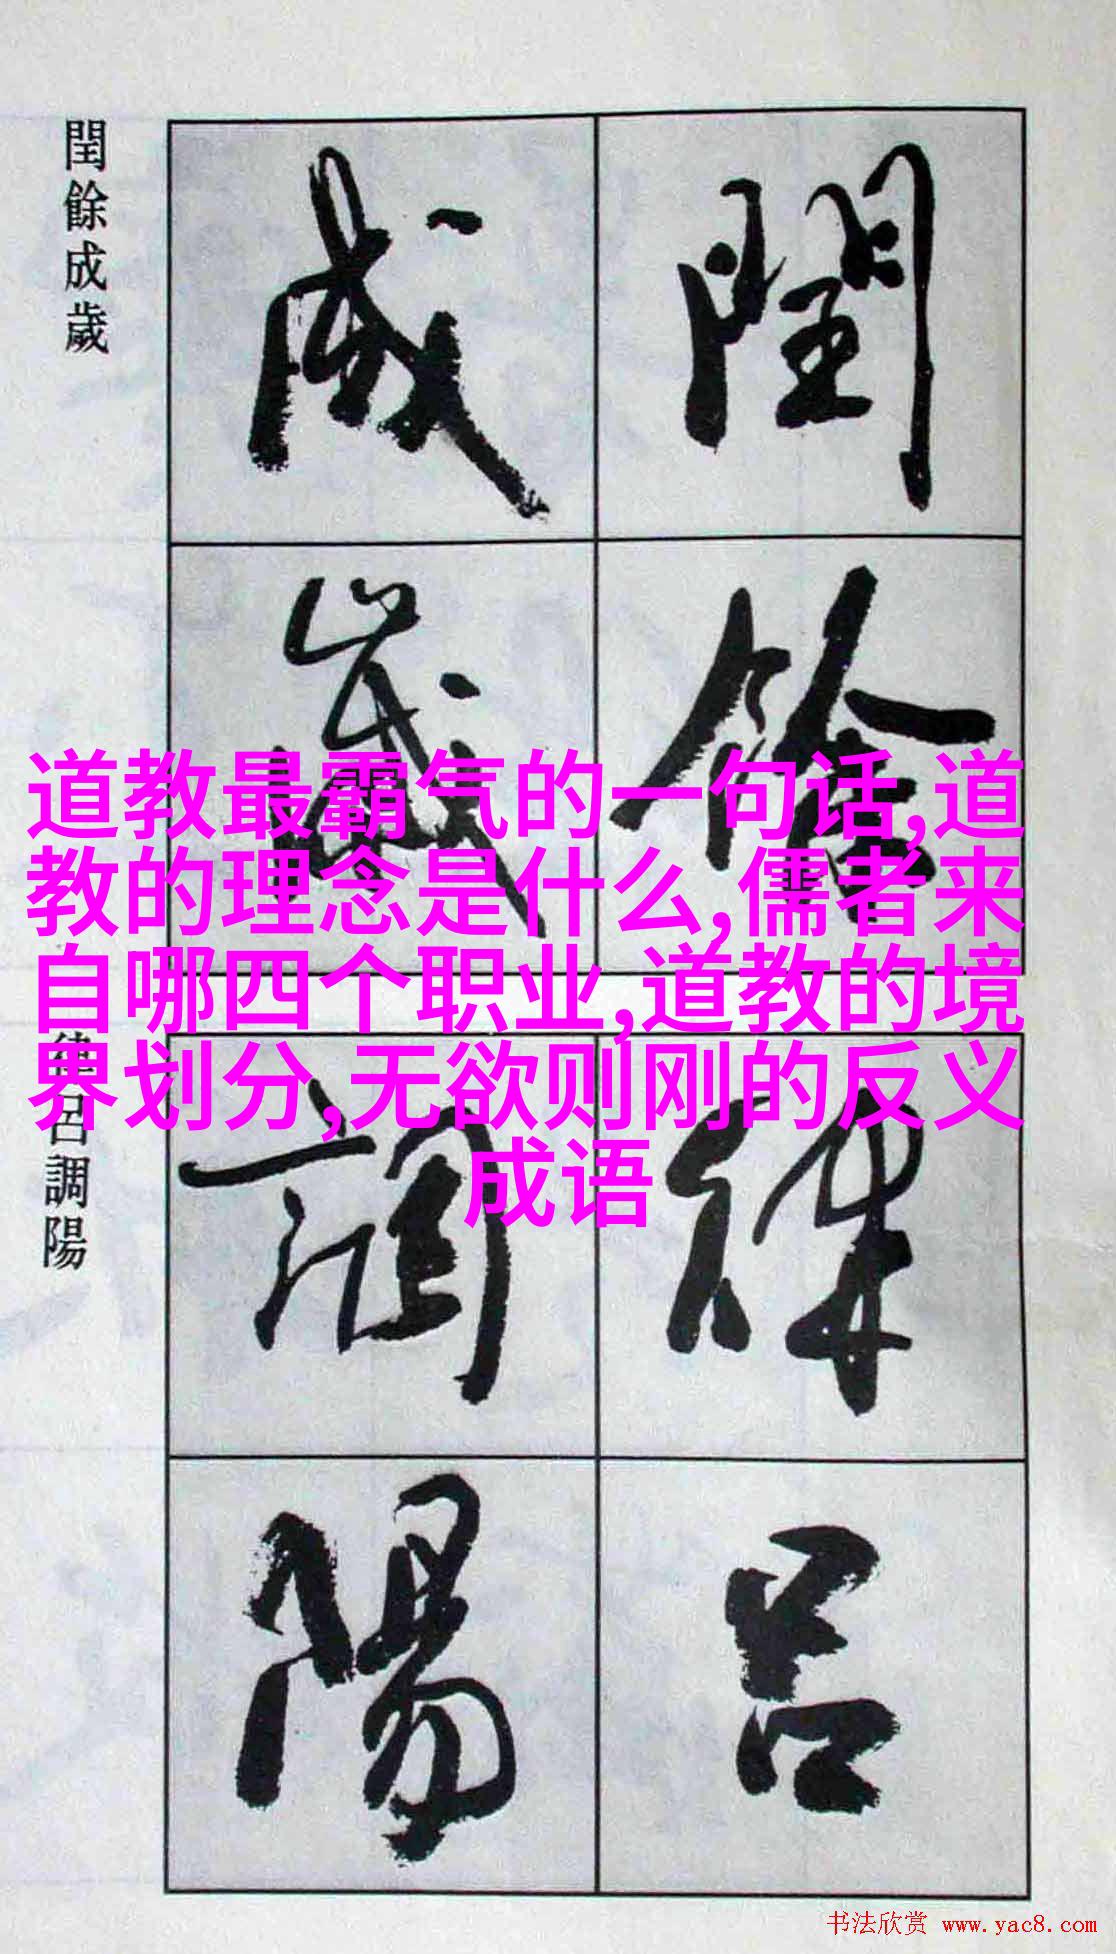 閏餘成歲
閏餘
成歲
道教最霸气的一句话,道
教的理念是什么,儒者来
自哪四个职业,道教的境
界划分,无欲则刚的反义
成语
律呂調陽
律呂
調陽
书法欣赏 www.yac8.com